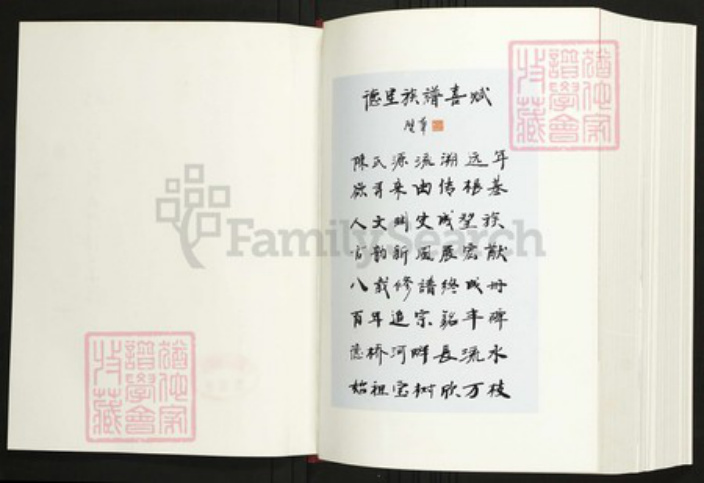 德星族譜喜賦
陳氏源流溯远年
欲寻来由传根基
人文渊史成望族
古韵新风展宏猷
八载修譜终成册
百年追宗銘丰碑
德桥河畔長流水
始祖宝树欣万枝
FamilySearch
猶他家
譜學會
收藏
猶他家
譜學會
收藏